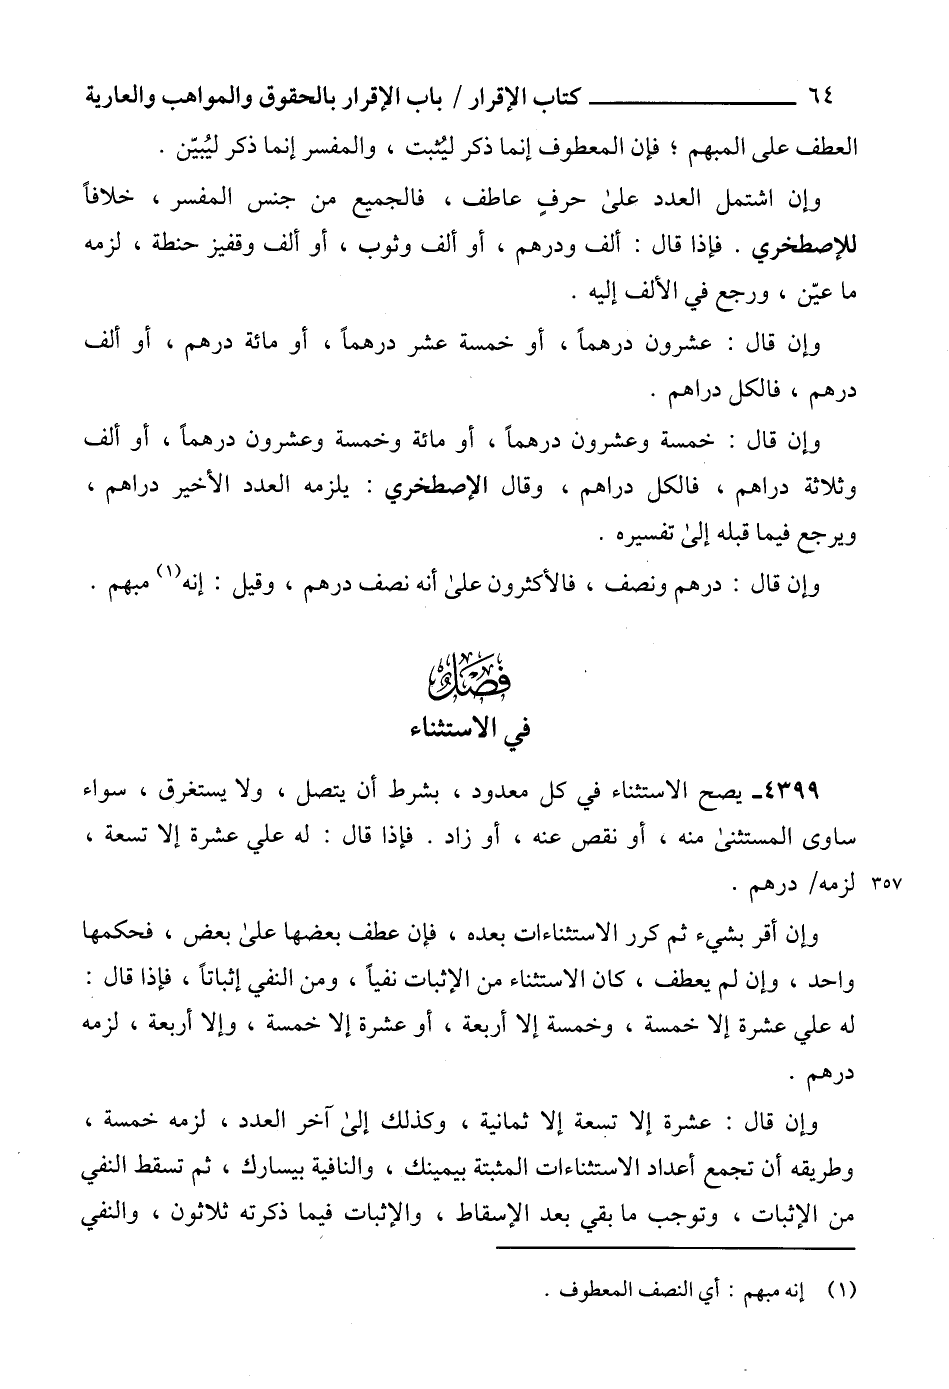 ٦٤ ــــــــــــــــ كتاب الإقرار / باب الإقرار بالحقوق والمواهب والعارية
العطف على المبهم ؛ فإن المعطوف إنما ذكر ليُثبت ، والمفسر إنما ذكر ليُبيّن .
وإن اشتمل العدد علىٰ حرفٍ عاطف ، فالجميع من جنس المفسر ، خلافاً
للإصطخري . فإذا قال : ألف ودرهم ، أو ألف وثوب ، أو ألف وقفيز حنطة ، لزمه
ما عيّن ، ورجع في الألف إليه .
وإن قال : عشرون درهماً ، أو خمسة عشر درهماً ، أو مائة درهم ، أو ألف
درهم ، فالكل دراهم .
وإن قال : خمسة وعشرون درهماً ، أو مائة وخمسة وعشرون درهماً ، أو ألف
وثلاثة دراهم ، فالكل دراهم ، وقال الإصطخري : يلزمه العدد الأخير دراهم ،
ويرجع فيما قبله إلىٰ تفسيره .
وإن قال : درهم ونصف ، فالأكثرون علىٰ أنه نصف درهم ، وقيل : إنه(١) مبهم .
فصل
في الاستثناء
٤٣٩٩ـ يصح الاستثناء في كل معدود ، بشرط أن يتصل ، ولا يستغرق ، سواء
ساوى المستثنىٰ منه ، أو نقص عنه ، أو زاد . فإذا قال : له علي عشرة إلا تسعة ،
٣٥٧ لزمه/ درهم .
وإن أقر بشيء ثم كرر الاستثناءات بعده ، فإن عطف بعضها علىٰ بعض ، فحكمها
واحد ، وإن لم يعطف ، كان الاستثناء من الإثبات نفياً ، ومن النفي إثباتاً ، فإذا قال :
له علي عشرة إلا خمسة ، وخمسة إلا أربعة ، أو عشرة إلا خمسة ، وإلا أربعة ، لزمه
درهم .
وإن قال : عشرة إلا تسعة إلا ثمانية ، وكذلك إلىٰ آخر العدد ، لزمه خمسة ،
وطريقه أن تجمع أعداد الاستثناءات المثبتة بيمينك ، والنافية بيسارك ، ثم تسقط النفي
من الإثبات ، وتوجب ما بقي بعد الإسقاط ، والإثبات فيما ذكرته ثلاثون ، والنفي
(١) إنه مبهم : أي النصف المعطوف .